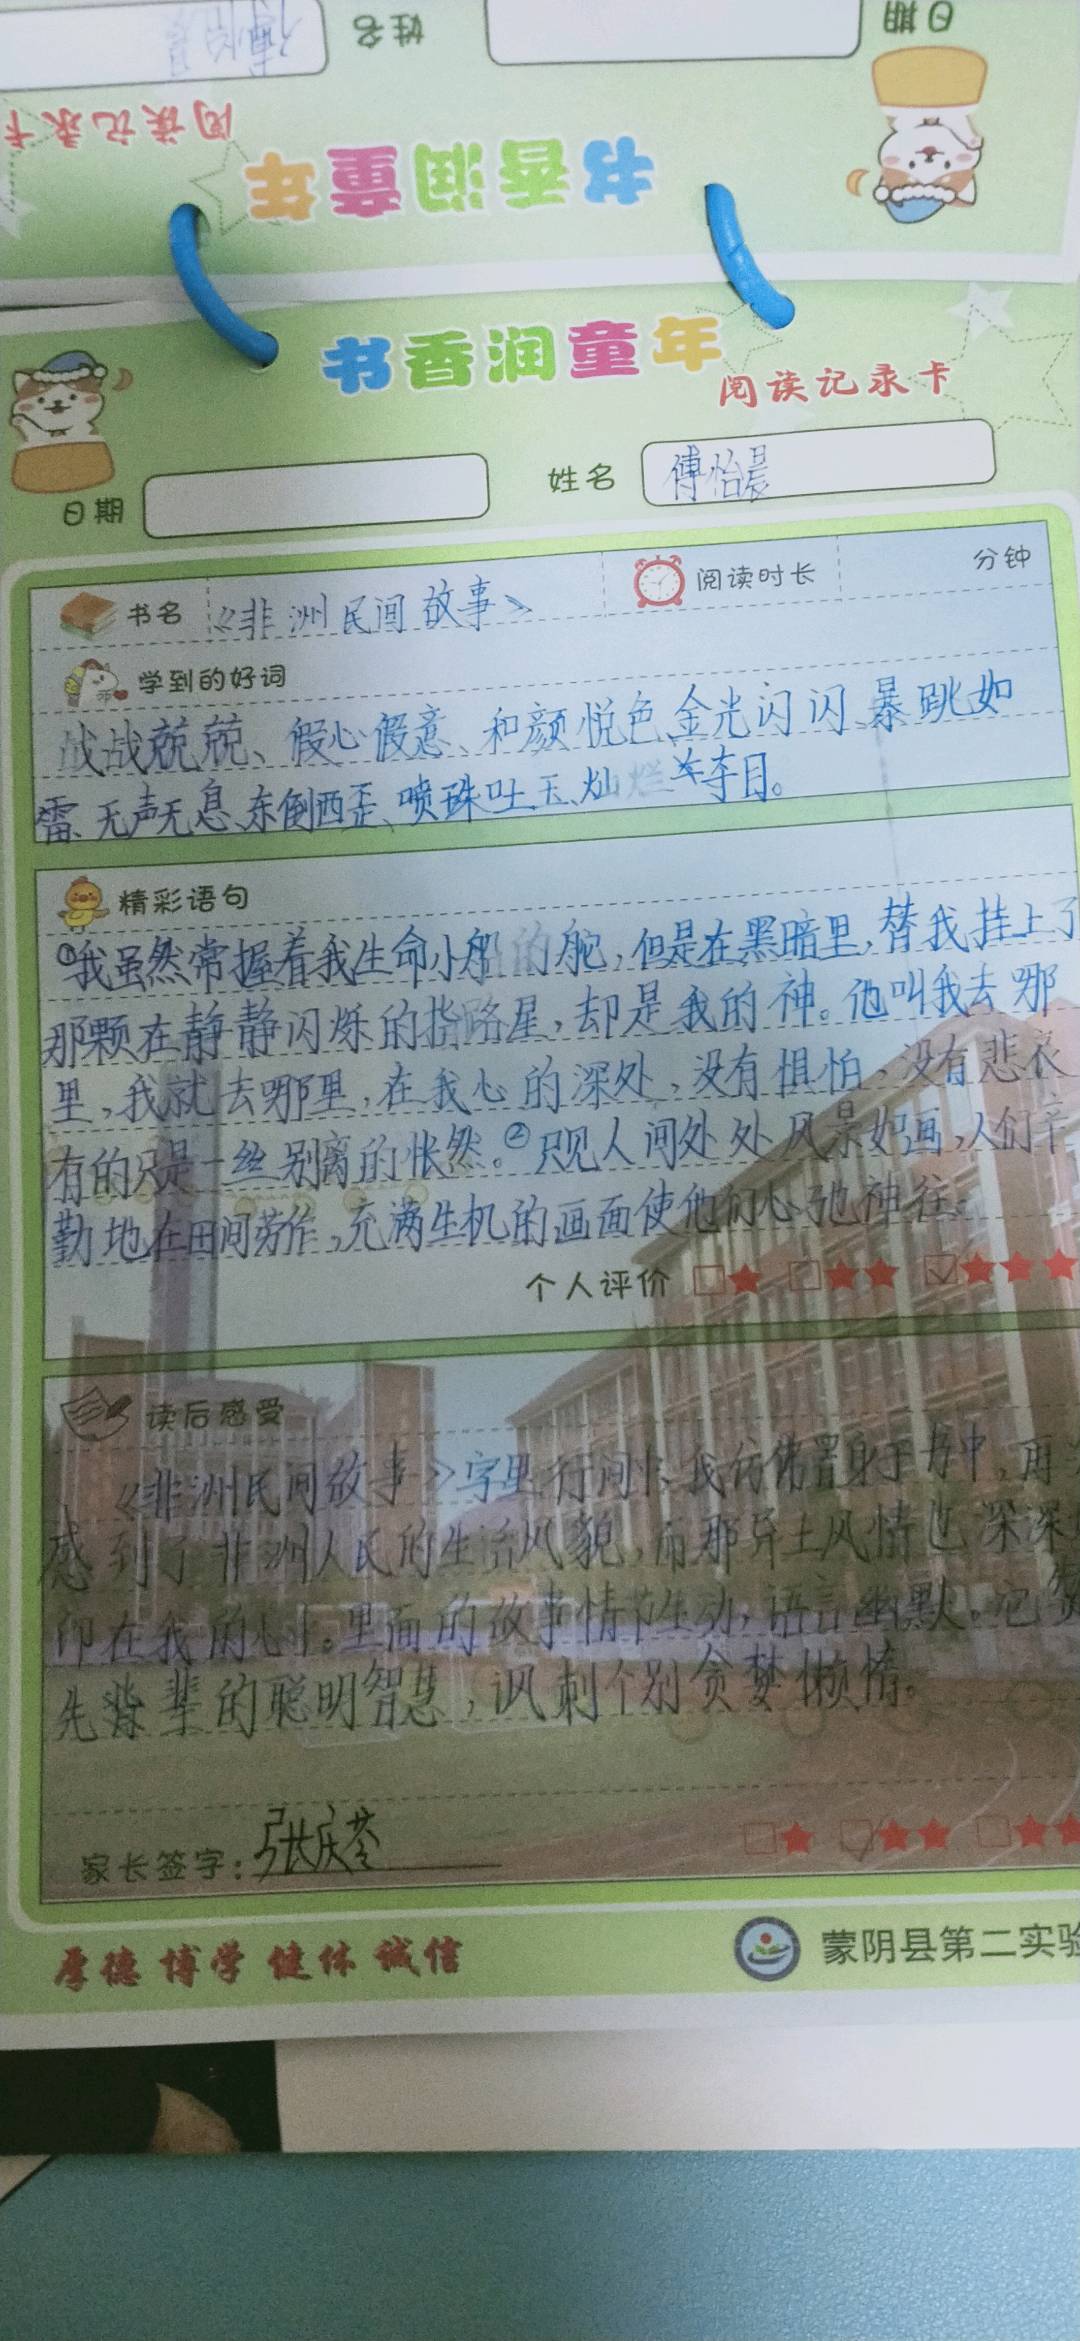 日期
姓名 傅怡晨
阅读记录卡
书香润童年
书香润童年
阅读记录卡
日期
姓名 傅怡晨
书名 《非洲民间故事》 阅读时长 分钟
学到的好词
战战兢兢、假心假意、和颜悦色、金光闪闪、暴跳如
雷、无声无息、东倒西歪、喷珠吐玉、灿烂夺目。
精彩语句
①我虽然常握着我生命小船的舵,但是在黑暗里,替我挂上了
那颗在静静闪烁的指路星,却是我的神。他叫我去哪
里,我就去哪里,在我心的深处,没有惧怕,没有悲哀
有的只是一丝别离的怅然。②只见人间处处风景如画,人们辛
勤地在田间劳作,充满生机的画面使他们心驰神往。
个人评价
读后感受
《非洲民间故事》字里行间,我仿佛置身于书中,再
感到了非洲人民的生活风貌,而那异土风情也深深
印在我的心上。里面的故事情节生动,语言幽默。它赞
先辈的聪明智慧,讽刺个别贪婪懒惰。
家长签字:张庆苓
厚德 博学 健体 诚信
蒙阴县第二实验